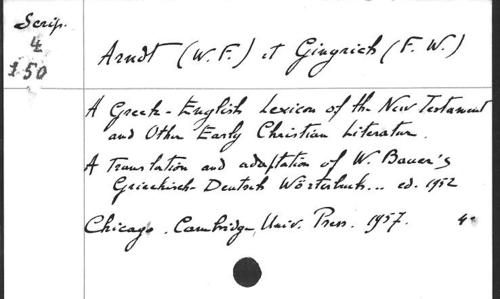 Scrip.
4
150
Arndt (W.F.) et Gingrich (F.W.)
A Greek-English Lexicon of the New Testament
and Other Early Christian Literature.
A Translation and adaptation of W. Bauer's
Griechisch-Deutsch Wörterbuch... ed. 1952
Chicago. Cambridge, Univ. Press. 1957. 4°